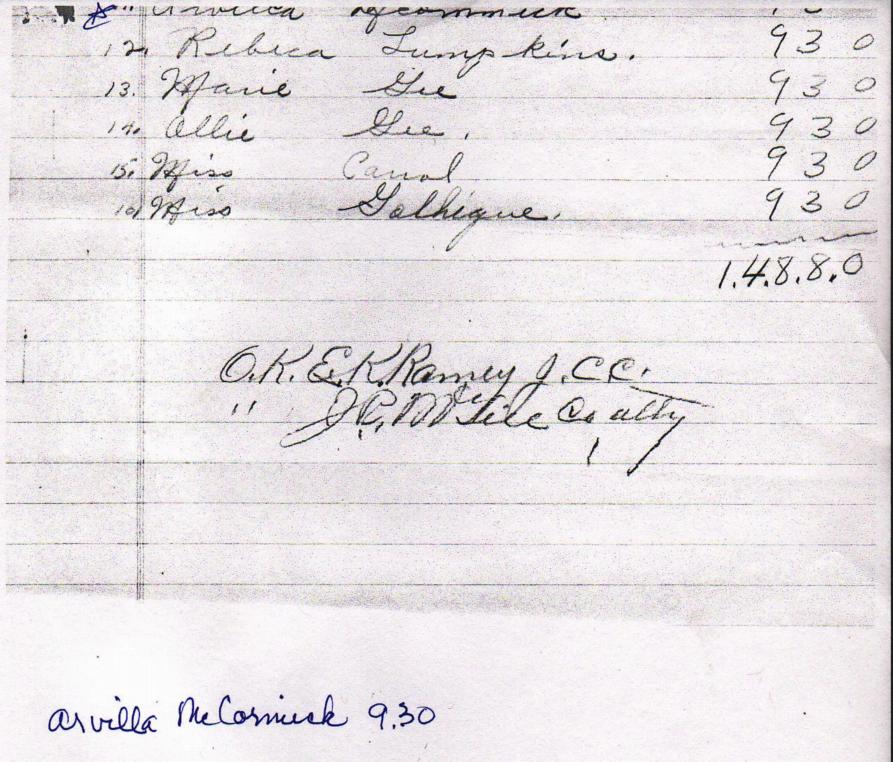 11. Arvilla Mccormick
12. Rebeca Lumpkins. 9 3 0
13. Marie Gee 9 3 0
14. Ollie Gee. 9 3 0
15. Miss Canol 9 3 0
16. Miss Golhigue. 9 3 0
1.4.8.8.0
O.K. E.K. Ramey J.C.C.
" J.C. Co atty
Arvilla McCormick 9.30